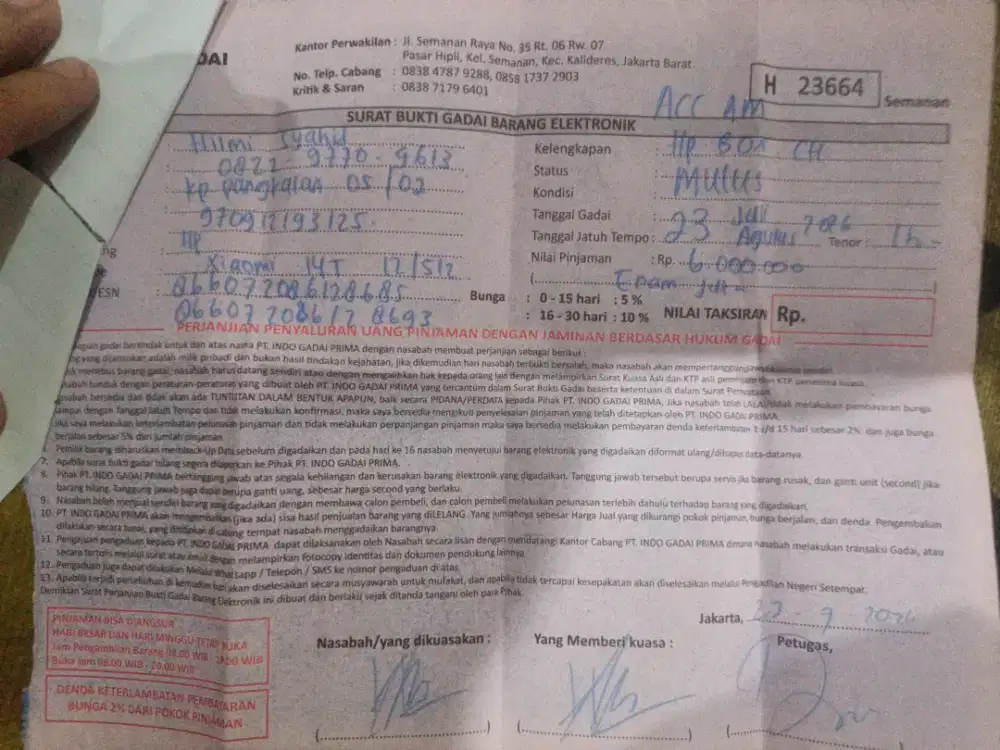 DAI
Kantor Perwakilan : Jl. Semanan Raya No. 35 Rt. 06 Rw. 07
Pasar Hipli, Kel. Semanan, Kec. Kalideres, Jakarta Barat
No. Telp. Cabang : 0838 4787 9288, 0858 1737 2903
Kritik & Saran : 0838 7179 6401
H 23664
Semanan
ACC AM
SURAT BUKTI GADAI BARANG ELEKTRONIK
Hilmi Syahid
0822-9770-9613
kp pangkalan 05/02
970912193125
ng HP
Xiaomi 14T 12/512
ESN 866072086128685
866072086128693
Kelengkapan : Hp BOX CH
Status :
Kondisi : MULUS
Tanggal Gadai : 23 Juli 2026
Tanggal Jatuh Tempo : Agustus Tenor : 1b
Nilai Pinjaman : Rp. 6.000.000
(Enam Juta
Bunga : 0 - 15 hari : 5 %
: 16 - 30 hari : 10 %
NILAI TAKSIRAN Rp.
PERJANJIAN PENYALURAN UANG PINJAMAN DENGAN JAMINAN BERDASAR HUKUM GADAI
bertindak untuk dan atas nama PT. INDO GADAI PRIMA dengan nasabah membuat perjanjian sebagai berikut :
yang dijaminkan adalah milik pribadi dan bukan hasil tindakan kejahatan, jika dikemudian hari nasabah terbukti bersalah, maka nasabah akan
menebus barang gadai, nasabah harus datang sendiri atau dengan mengalihkan hak kepada orang lain dengan melampirkan Surat Kuasa Asli dan KTP asli peminjam dan KTP penerima kuasa.
nasabah tunduk dengan peraturan-peraturan yang dibuat oleh PT. INDO GADAI PRIMA yang tercantum dalam Surat Bukti Gadai beserta ketentuan di dalam Surat Pernyataan.
nasabah bersedia dan tidak akan ada TUNTUTAN DALAM BENTUK APAPUN, baik secara PIDANA/PERDATA kepada Pihak PT. INDO GADAI PRIMA, Jika nasabah telah LALAI/tidak melakukan pembayaran bunga
sampai dengan Tanggal Jatuh Tempo dan tidak melakukan konfirmasi, maka saya bersedia mengikuti penyelesaian pinjaman yang telah ditetapkan oleh PT. INDO GADAI PRIMA.
Jika saya melakukan keterlambatan pelunasan pinjaman dan tidak melakukan perpanjangan pinjaman maka saya bersedia melakukan pembayaran denda keterlambatan 1 s/d 15 hari sebesar 2% dan juga bunga
berjalan sebesar 5% dari jumlah pinjaman.
Pemilik barang diharuskan memback-Up Data sebelum digadaikan dan pada hari ke 16 nasabah menyetujui barang elektronik yang digadaikan diformat ulang/dihapus data-datanya.
7. Apabila surat bukti gadai hilang segera dilaporkan ke Pihak PT. INDO GADAI PRIMA.
8. Pihak PT. INDO GADAI PRIMA bertanggung jawab atas segala kehilangan dan kerusakan barang elektronik yang digadaikan. Tanggung jawab tersebut berupa servis jika barang rusak, dan ganti unit (second) jika
barang hilang. Tanggung jawab juga dapat berupa ganti uang, sebesar harga second yang berlaku.
9. Nasabah boleh menjual sendiri barang yang digadaikan dengan membawa calon pembeli, dan calon pembeli melakukan pelunasan terlebih dahulu terhadap barang yang digadaikan.
10. PT INDO GADAI PRIMA akan mengembalikan (jika ada) sisa hasil penjualan barang yang diLELANG. Yang jumlahnya sebesar Harga Jual yang dikurangi pokok pinjaman, bunga berjalan, dan denda. Pengembalian
dilakukan secara tunai, yang ditetapkan di cabang tempat nasabah menggadaikan barangnya.
11. Pengajuan pengaduan kepada PT. INDO GADAI PRIMA dapat dilaksanakan oleh Nasabah secara lisan dengan mendatangi Kantor Cabang PT. INDO GADAI PRIMA dimana nasabah melakukan transaksi Gadai, atau
secara tertulis melalui surat atau email dengan melampirkan fotocopy identitas dan dokumen pendukung lainnya.
12. Pengaduan juga dapat dilakukan Melalui Whatsapp / Telepon / SMS ke nomor pengaduan di atas.
13. Apabila terjadi perselisihan di kemudian hari akan diselesaikan secara musyawarah untuk mufakat, dan apabila tidak tercapai kesepakatan akan diselesaikan melalui Pengadilan Negeri Setempat.
Demikian Surat Perjanjian Bukti Gadai Barang Elektronik ini dibuat dan berlaku sejak ditanda tangani oleh para Pihak.
PINJAMAN BISA DIANGSUR
HARI BESAR DAN HARI MINGGU TETAP BUKA
Jam Pengambilan Barang 09.00 WIB - 19.00 WIB
Buka Jam 08.00 WIB - 20.00 WIB
DENDA KETERLAMBATAN PEMBAYARAN
BUNGA 2% DARI POKOK PINJAMAN
Jakarta, 23 - 9 2026
Nasabah/yang dikuasakan :
Yang Memberi kuasa :
Petugas,